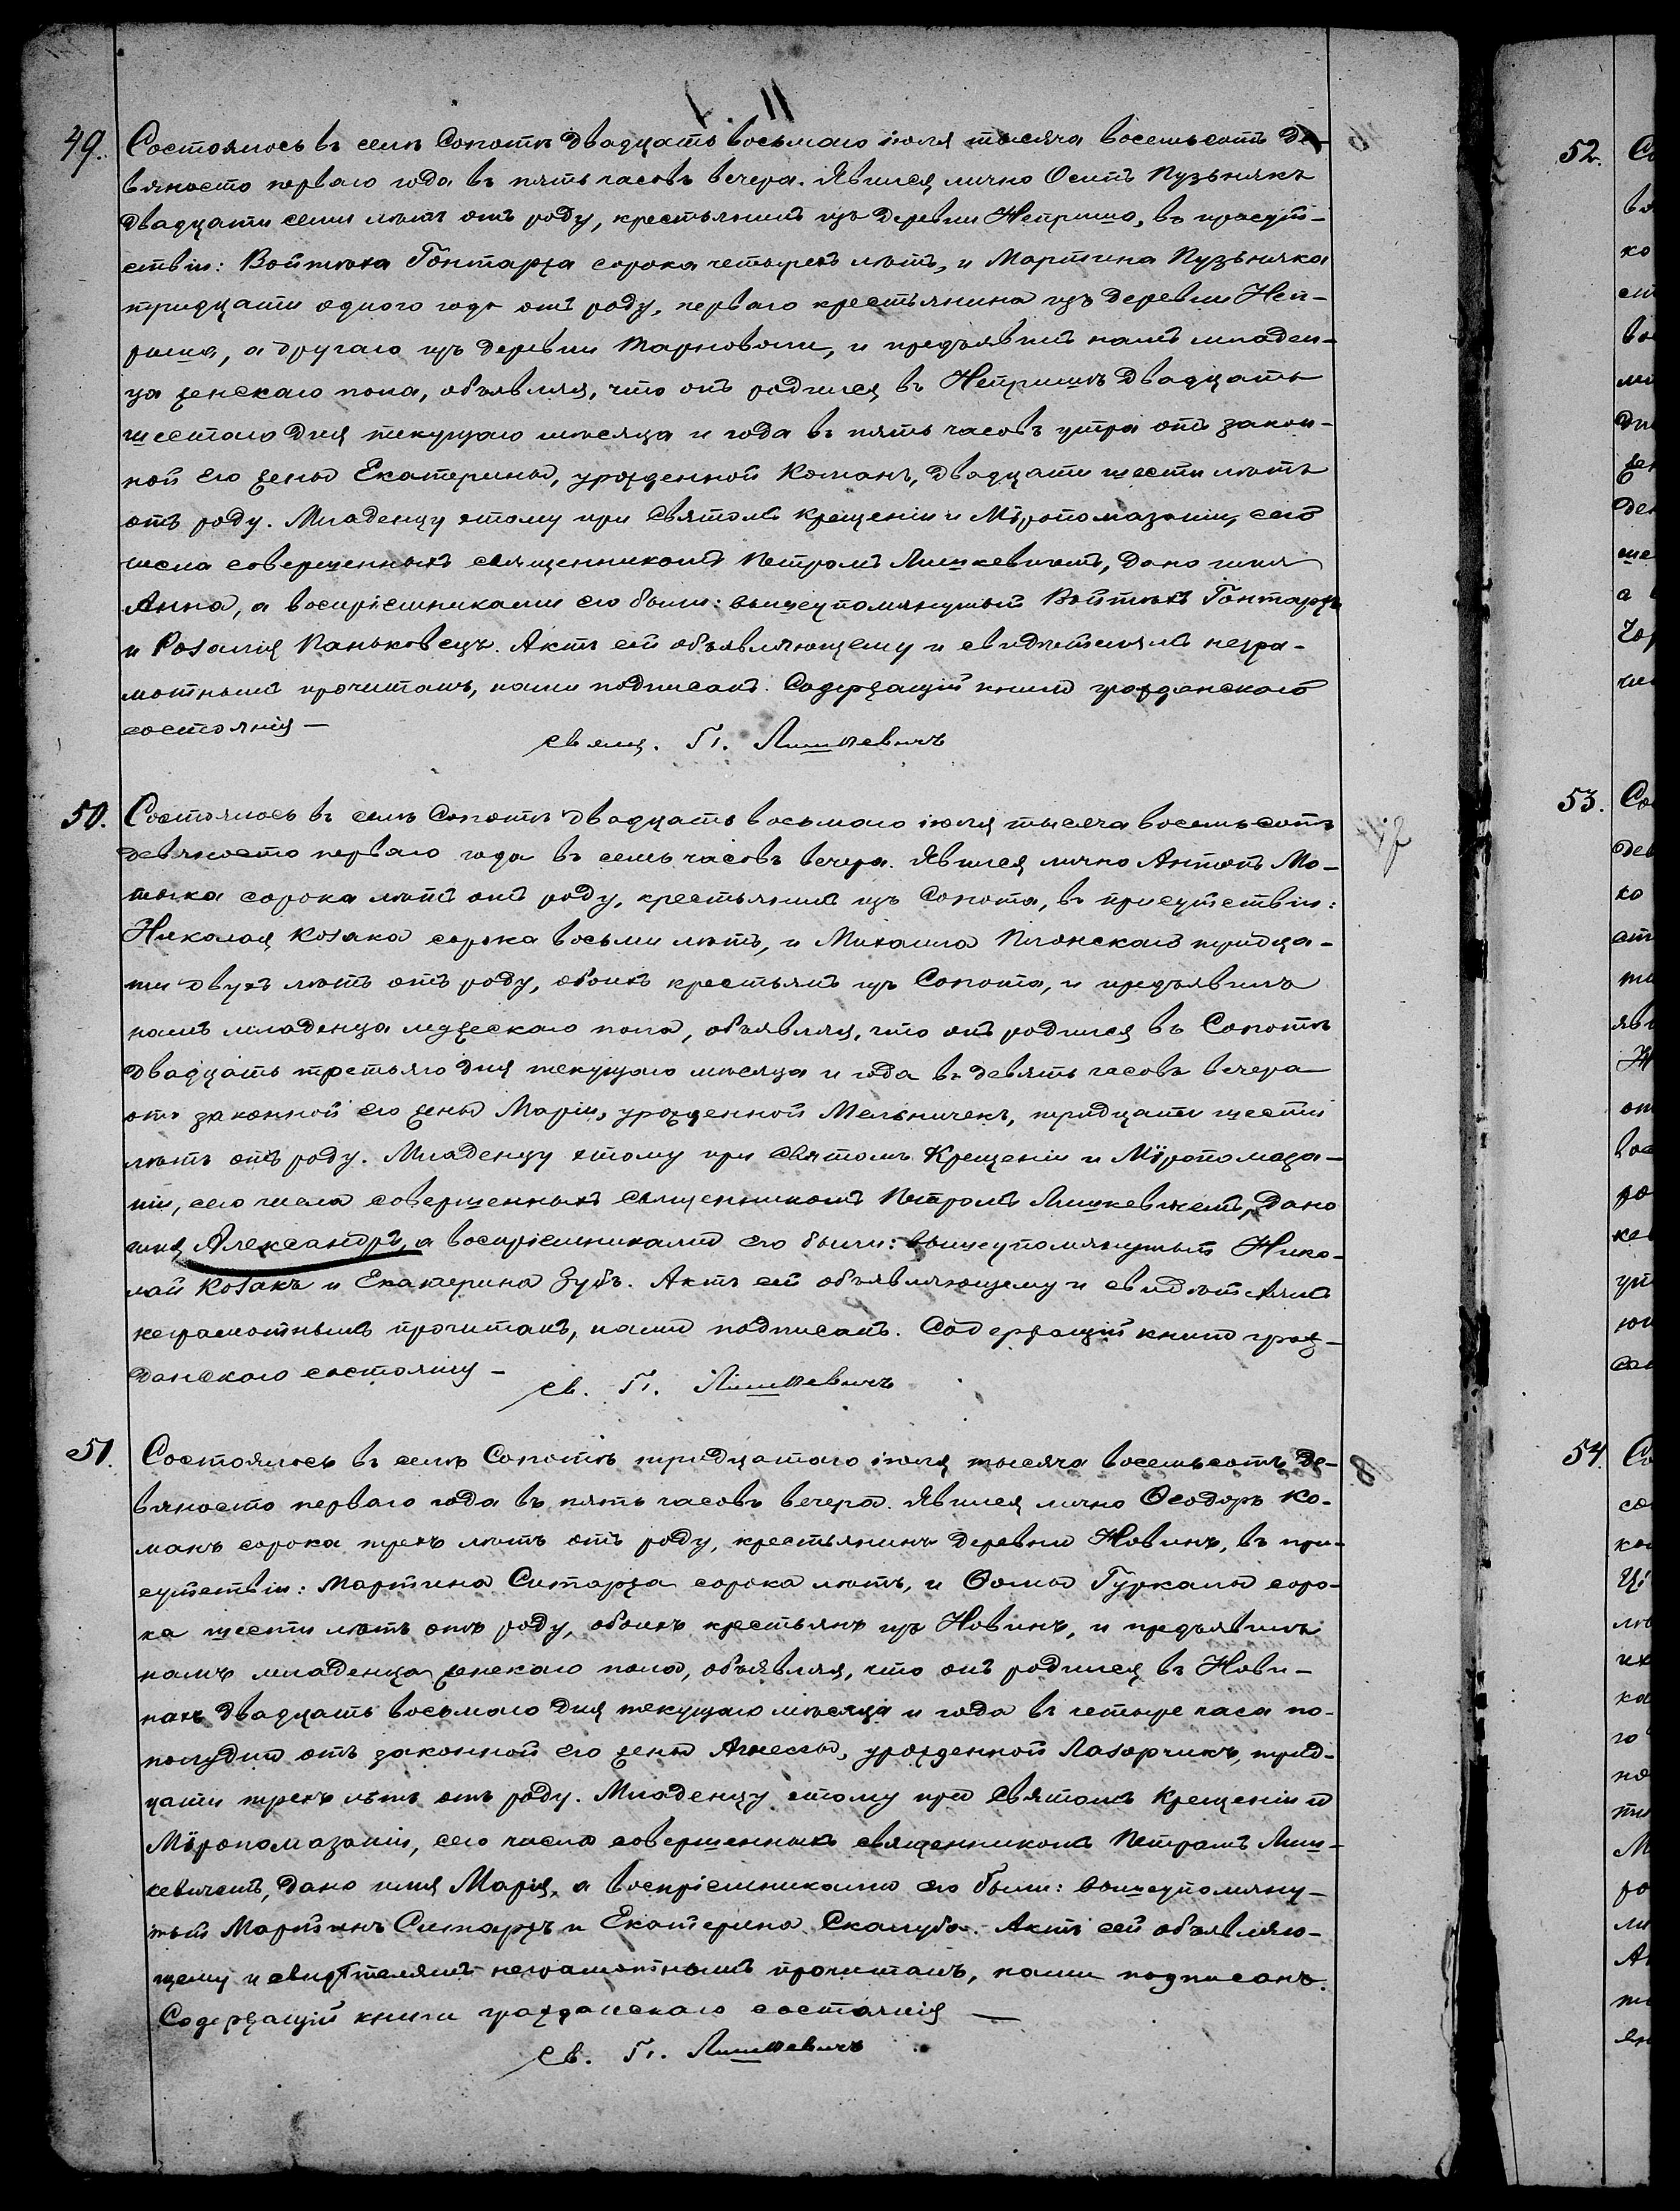 49. Состоялось въ селѣ Сопотѣ двадцать восьмаго іюля тысяча восемьсотъ де-
вяносто перваго года въ пять часовъ вечера. Явился лично Осипъ Пузьнякъ
двадцати семи лѣтъ отъ роду, крестьянинъ изъ деревни Неприша, въ присут-
ствіи: Войтѣха Гонтаржа сорока четырехъ лѣтъ, и Мартина Пузьняка
тридцати одного года отъ роду, перваго крестьянина изъ деревни Неп-
риша, а другаго изъ деревни Тарноволи, и предъявилъ намъ младен-
ца женскаго пола, объявляя, что онъ родился въ Непришѣ двадцать
шестаго дня текущаго мѣсяца и года въ пять часовъ утра отъ закон-
ной его жены Екатерины, урожденной Команъ, двадцати шести лѣтъ
отъ роду. Младенцу этому при Святомъ Крещеніи и Мѵропомазаніи, сего
числа совершенныхъ священникомъ Петромъ Лишкевичемъ, дано имя
Анна, а воспріемниками его были: вышеупомянутый Войтѣхъ Гонтаржъ
и Розалія Паньковецъ. Актъ сей объявляющему и свидѣтелямъ негра-
мотнымъ прочитанъ, нами подписанъ. Содержащій книги гражданскаго
состоянія —
свящ. П. Лишкевичъ
50. Состоялось въ селѣ Сопотѣ двадцать восьмаго іюля тысяча восемьсотъ
девяносто перваго года въ семь часовъ вечера. Явился лично Антонъ Мо-
тыка сорока лѣтъ отъ роду, крестьянинъ изъ Сопота, въ присутствіи:
Николая Козака сорока восьми лѣтъ, и Михаила Плонскаго тридца-
ти двухъ лѣтъ отъ роду, обоихъ крестьянъ изъ Сопота, и предъявилъ
намъ младенца мужескаго пола, объявляя, что онъ родился въ Сопотѣ
двадцать третьяго дня текущаго мѣсяца и года въ девять часовъ вечера
отъ законной его жены Маріи, урожденной Мельничекъ, тридцати шести
лѣтъ отъ роду. Младенцу этому при Святомъ Крещеніи и Мѵропомаза-
ніи, сего числа совершенныхъ священникомъ Петромъ Лишкевичемъ, дано
имя Александръ, а воспріемниками его были: вышеупомянутый Нико-
лай Козакъ и Екатерина Зубъ. Актъ сей объявляющему и свидѣтелямъ
неграмотнымъ прочитанъ, нами подписанъ. Содержащій книги граж-
данскаго состоянія —
св. П. Лишкевичъ
51. Состоялось въ селѣ Сопотѣ тридцатаго іюля тысяча восемьсотъ де-
вяносто перваго года въ пять часовъ вечера. Явился лично Ѳеодоръ Ко-
манъ сорока трехъ лѣтъ отъ роду, крестьянинъ деревни Новинъ, въ при-
сутствіи: Мартина Ситаржа сорока лѣтъ, и Ѳомы Гуркалы соро-
ка шести лѣтъ отъ роду, обоихъ крестьянъ изъ Новинъ, и предъявилъ
намъ младенца женскаго пола, объявляя, что онъ родился въ Нови-
нахъ двадцать восьмаго дня текущаго мѣсяца и года въ четыре часа по-
полудни отъ законной его жены Агнессы, урожденной Лазорчикъ, трид-
цати трехъ лѣтъ отъ роду. Младенцу этому при Святомъ Крещеніи и
Мѵропомазаніи, сего числа совершенныхъ священникомъ Петромъ Лиш-
кевичемъ, дано имя Марія, а воспріемниками его были: вышеупомяну-
тый Мартинъ Ситаржъ и Екатерина Скалуба. Актъ сей объявляю-
щему и свидѣтелямъ неграмотнымъ прочитанъ, нами подписанъ.
Содержащій книги гражданскаго состоянія —
св. П. Лишкевичъ
52.
53.
54.